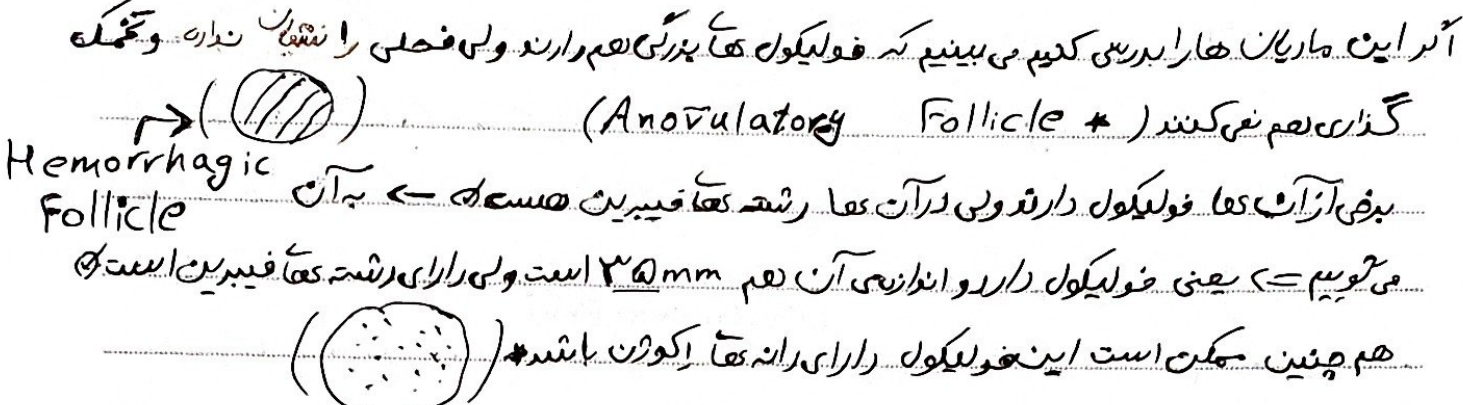 اگر این مادیان ها را بررسی کنیم می بینیم که فولیکول های بزرگی هم دارند ولی فحلی را نشان نداره و تخمک
گذاری هم نمی کنند (* Anovulatory Follicle)
Hemorrhagic Follicle
برخی از آن ها فولیکول دارند ولی در آن ها رشته های فیبرین هست ← به آن
می گوییم => یعنی فولیکول دارد و اندازه ی آن هم ۳۵mm است ولی دارای رشته های فیبرین است
هم چنین ممکن است این فولیکول دارای دانه های اکوژن باشد*